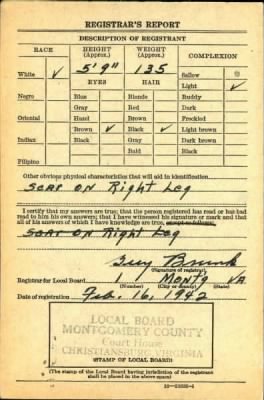 REGISTRAR'S REPORT
DESCRIPTION OF REGISTRANT
RACE HEIGHT (Approx.) WEIGHT (Approx.) COMPLEXION
5' 9" 135 Sallow
White ✓ EYES HAIR Light ✓
Negro Blue Blonde Ruddy
Gray Red Dark
Oriental Hazel Brown Freckled
Brown ✓ Black ✓ Light brown
Indian Black Gray Dark brown
Bald Black
Filipino
Other obvious physical characteristics that will aid in identification
Scar on Right Leg
I certify that my answers are true; that the person registered has read or has had
read to him his own answers; that I have witnessed his signature or mark and that
all of his answers of which I have knowledge are true, except as follows:
Scar on Right Leg
Brunk
(Signature of registrar)
Registrar for Local Board 1 Montg VA
(Number) (City or county) (State)
Date of registration Feb. 16, 1942
LOCAL BOARD
MONTGOMERY COUNTY
Court House
CHRISTIANSBURG VIRGINIA
(STAMP OF LOCAL BOARD)
(The stamp of the Local Board having jurisdiction of the registrant
shall be placed in the above space)